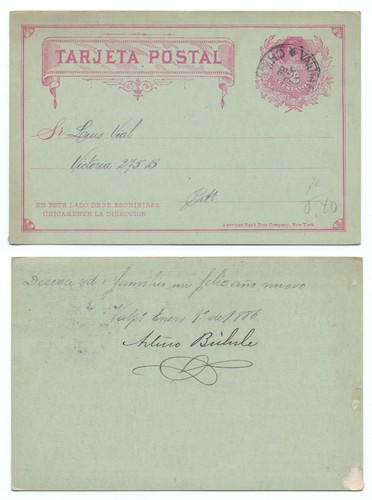 TARJETA POSTAL
Sr Louis Vial
Victoria 275 B
EN ESTE LADO DEBE ESCRIBIRSE
ÚNICAMENTE LA DIRECCION
0,40
American Bank Note Company, New York.
Desea á Vd i familia un feliz año nuevo
Valpº Enero 1º de 1886
Arturo